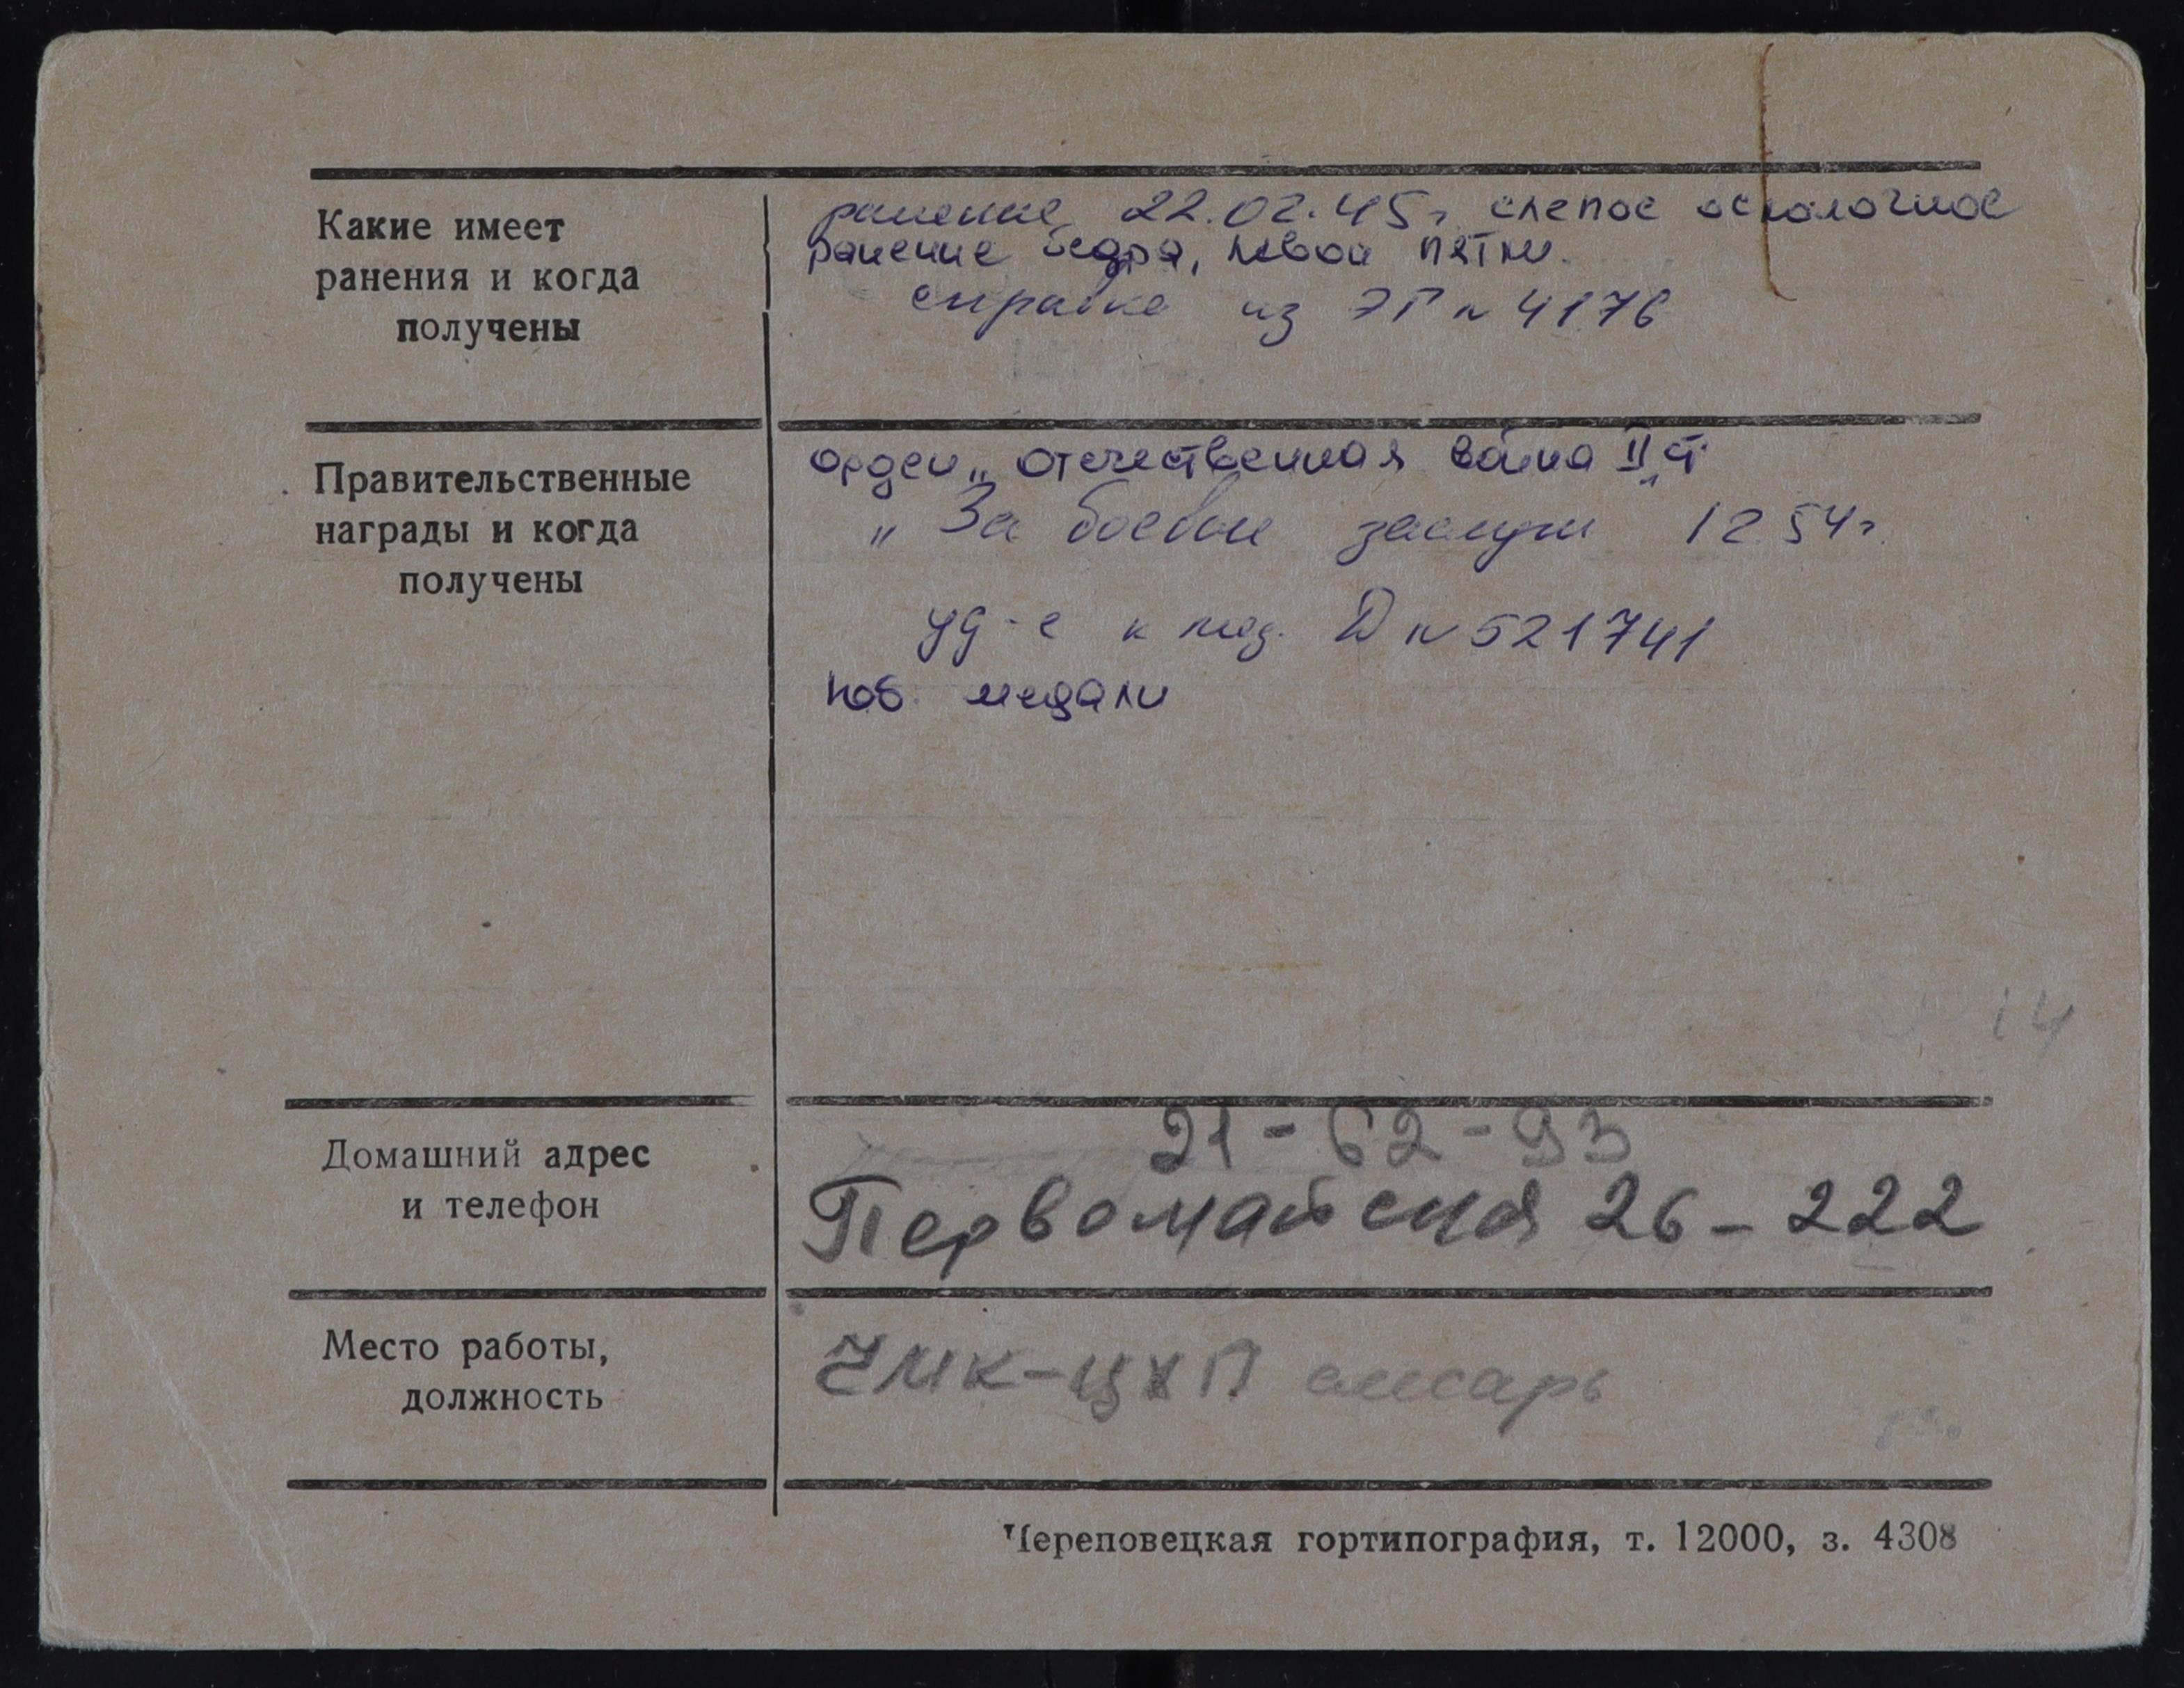 Какие имеет
ранения и когда
получены
ранение 22.02.45г. слепое осколочное
ранение бедра, левой пятки.
справка из ЭГ № 4176
Правительственные
награды и когда
получены
орден „Отечественная война II ст."
„За боевые заслуги" 12 54г.
уд-е к мед. Д № 521741
Юб. медали
14
Домашний адрес
и телефон
21-62-93
Первомайская 26-222
Место работы,
должность
ЧМК-ЦХП слесарь
Череповецкая гортипография, т. 12000, з. 4308